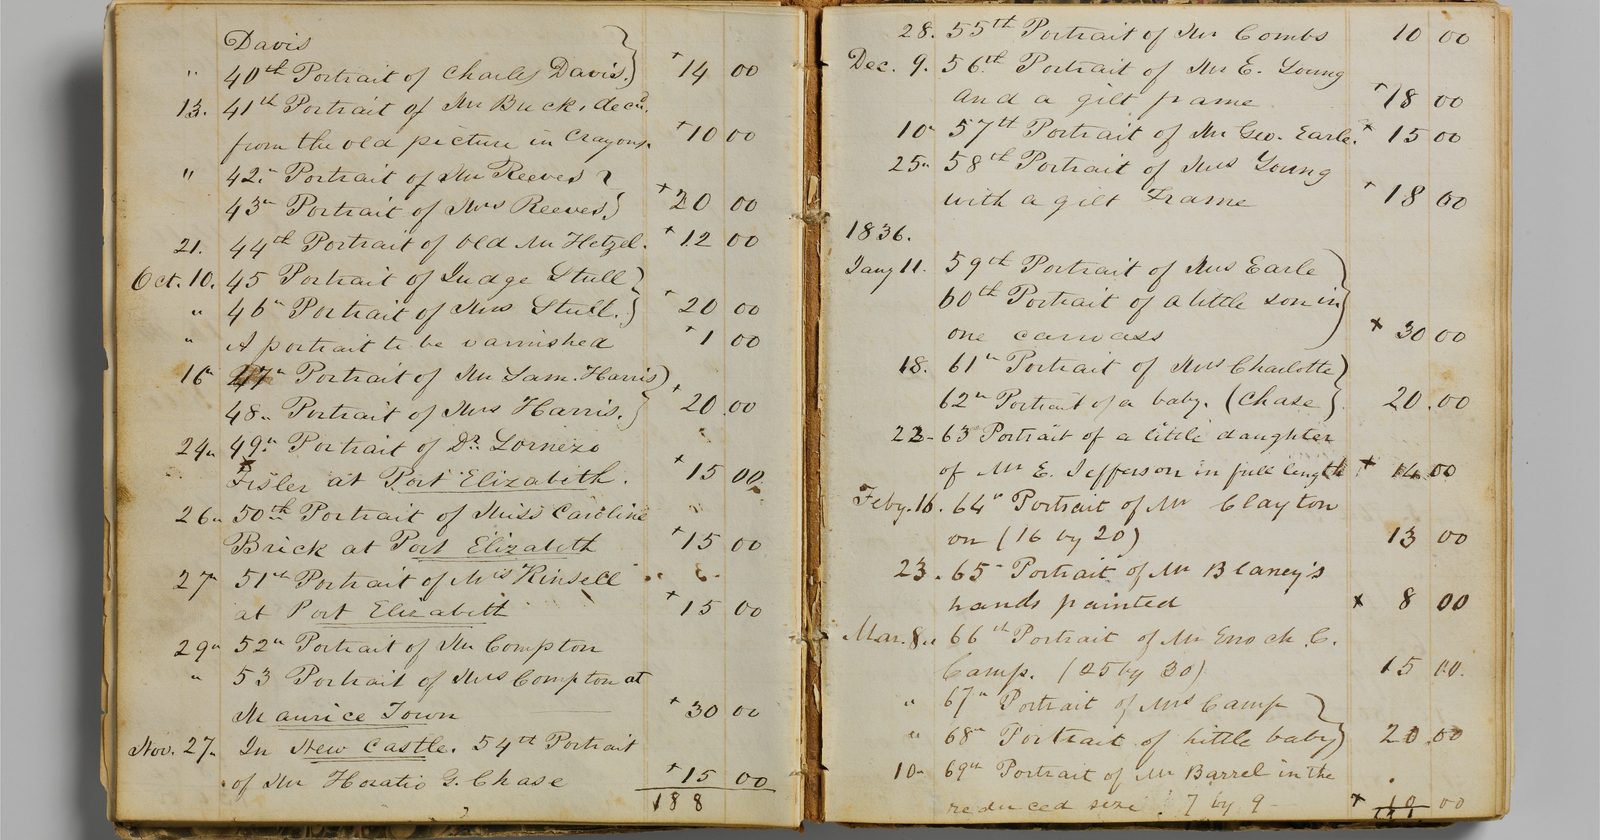 Davis
" 40th Portrait of Charles Davis. + 14 00
13. 41th Portrait of Mr Buck, decd.
from the old picture in Crayons. + 10 00
" 42" Portrait of Mr Reeves
43" Portrait of Mrs Reeves. + 20 00
21. 44th Portrait of old Mr Hetzel. + 12 00
Oct. 10. 45 Portrait of Judge Stull
" 46" Portrait of Mrs Stull. + 20 00
" A portrait to be varnished + 1 00
16" 47" Portrait of Mr Sam. Harris
48" Portrait of Mrs Harris. + 20 00
24" 49" Portrait of Dr. Lornezo
Fisler at Port Elizabeth. + 15 00
26" 50th Portrait of Miss Caroline
Brick at Port Elizabeth + 15 00
27" 51th Portrait of Mrs Kinsell
at Port Elizabeth + 15 00
29" 52" Portrait of Mr Compton
" 53 Portrait of Mrs Compton at
Maurice Town + 30 00
Nov. 27" In New Castle. 54th Portrait
of Mr Horatio G. Chase + 15 00
188
28. 55th Portrait of Mr Combs 10 00
Dec. 9. 56th Portrait of Mr E. Young
and a gilt frame + 18 00
10" 57th Portrait of Mr Geo. Earle. + 15 00
25" 58th Portrait of Mrs Young
with a gilt Frame + 18 00
1836.
Jany 11. 59th Portrait of Mrs Earle
60th Portrait of a little son in
one canvass + 30 00
18. 61" Portrait of Mrs Charlotte
62" Portrait of a baby. (Chase 20.00
22- 63 Portrait of a little daughter
of Mr E. Jefferson in full length + 14 00
Feby. 16. 64" Portrait of Mr Clayton
on (16 by 20) 13 00
23. 65" Portrait of Mr Blaney's
hands painted + 8 00
Mar. 8" 66th Portrait of Mr Enoch C.
Camp. (25 by 30) 15 00.
" 67" Portrait of Mrs Camp
" 68" Portrait of little baby 20.00
10" 69th Portrait of Mr Barrel in the
reduced size. 7 by 9 - + 10 00